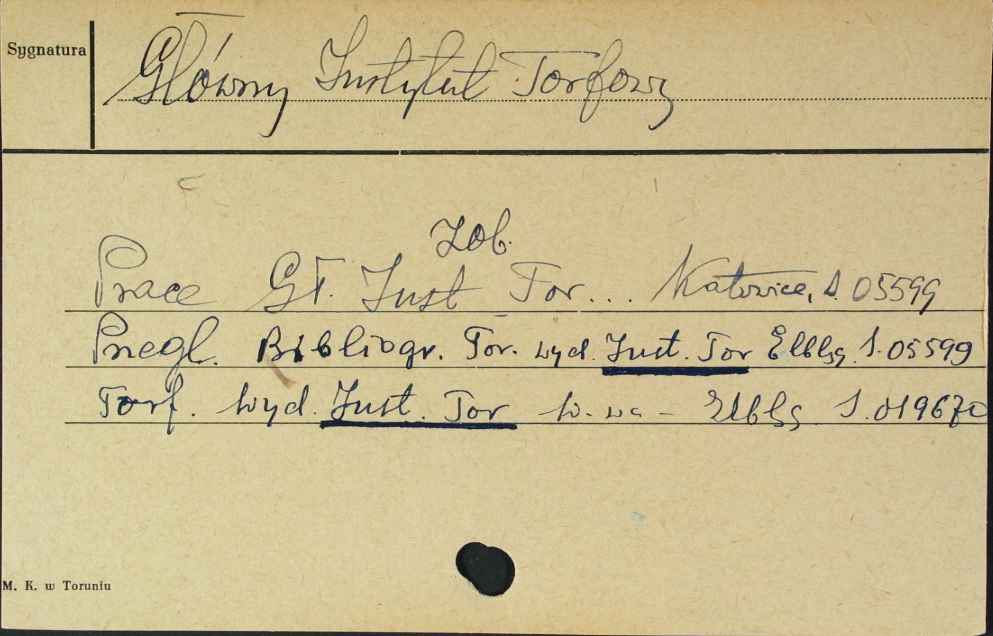 Sygnatura
Główny Instytut Torfowy
Zob.
Prace Gł. Inst Tor... Katowice, S. 05599
Przegl. Bibliogr. Tor. wyd. Inst. Tor Elbląg S.05599
Torf. wyd. Inst. Tor W-wa - Elbląg S.019670
M. K. w Toruniu